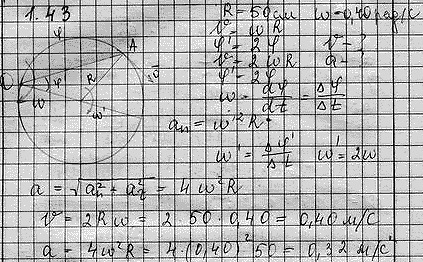 1.43
R = 50 см ω = 0,40 рад/с
v = ωR
φ' = 2φ v - ?
v = 2ωR a - ?
φ' = 2φ
ω = dφ/dt = Δφ/Δt
φ
A
R
O
φ
ω
ω'
v
aₙ = ω'²R
ω' = Δφ'/Δt ω' = 2ω
a = √(aₙ² + a_τ²) = 4ω²R
v = 2Rω = 2 · 50 · 0,40 = 0,40 м/с
a = 4ω²R = 4 · (0,40)² 50 = 0,32 м/с